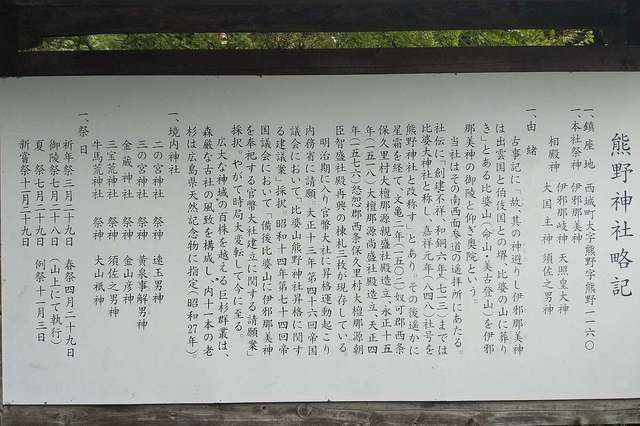 熊野神社略記
一、鎮座地　西城町大字熊野字熊野一一六〇
一、本社祭神　伊邪那美神
　　　　　　伊邪那岐神　天照皇大神
相殿神　大国主神　須佐之男神
一、由緒
古事記に「故、其の神避りし伊邪那美神
は出雲国と伯伎国との堺、比婆の山に葬り
き」とある比婆山（命山・美古登山）を伊邪
那美神の御陵と仰ぎ奥院という。
当社はその南西面参道の遥拝所にあたる。
社伝に「創建不祥、和銅六年（七一三）までは
比婆大神社と称し、嘉祥元年（八四八）社号を
熊野神社と改称す」とあり。その後遥かに
星霜を経て、文亀二年（一五〇二）奴可郡西条
保久里村大檀那源親盛社殿造立、永正十五
年（一五一八）大檀那源尚盛社殿造立、天正四
年（一五七六）怒怨郡西条保久里村大檀那源朝
臣智盛社殿再興の棟札三枚が現存している。
明治期に入り官幣大社に昇格運動起こり
内務省に請願、大正十三年第四十六回帝国
議会において「比婆山熊野神社昇格に関す
る建議案」採択。昭和十四年第七十四回帝
国議会において「備後比婆山に伊邪那美神
を奉祀する官幣大社建立に関する請願案」
採択、やがて時局大変転して今に至る。
広大な神域の百株を越える巨杉群叢は、
森厳な古社の風致を構成し、内十一本の老
杉は広島県天然記念物に指定（昭和27年）。
一、境内神社
二の宮神社　祭神　速玉男神
三の宮神社　祭神　黄泉事解男神
金蔵神社　祭神　金山彦神
三宝荒神社　祭神　須佐之男神
牛馬荒神社　祭神　大山祇神
一、祭日
祈年祭三月二十九日　春祭四月二十九日
御陵祭七月二十八日（山上にて執行）
夏祭七月二十九日　例祭十一月三日
新嘗祭十二月二十九日